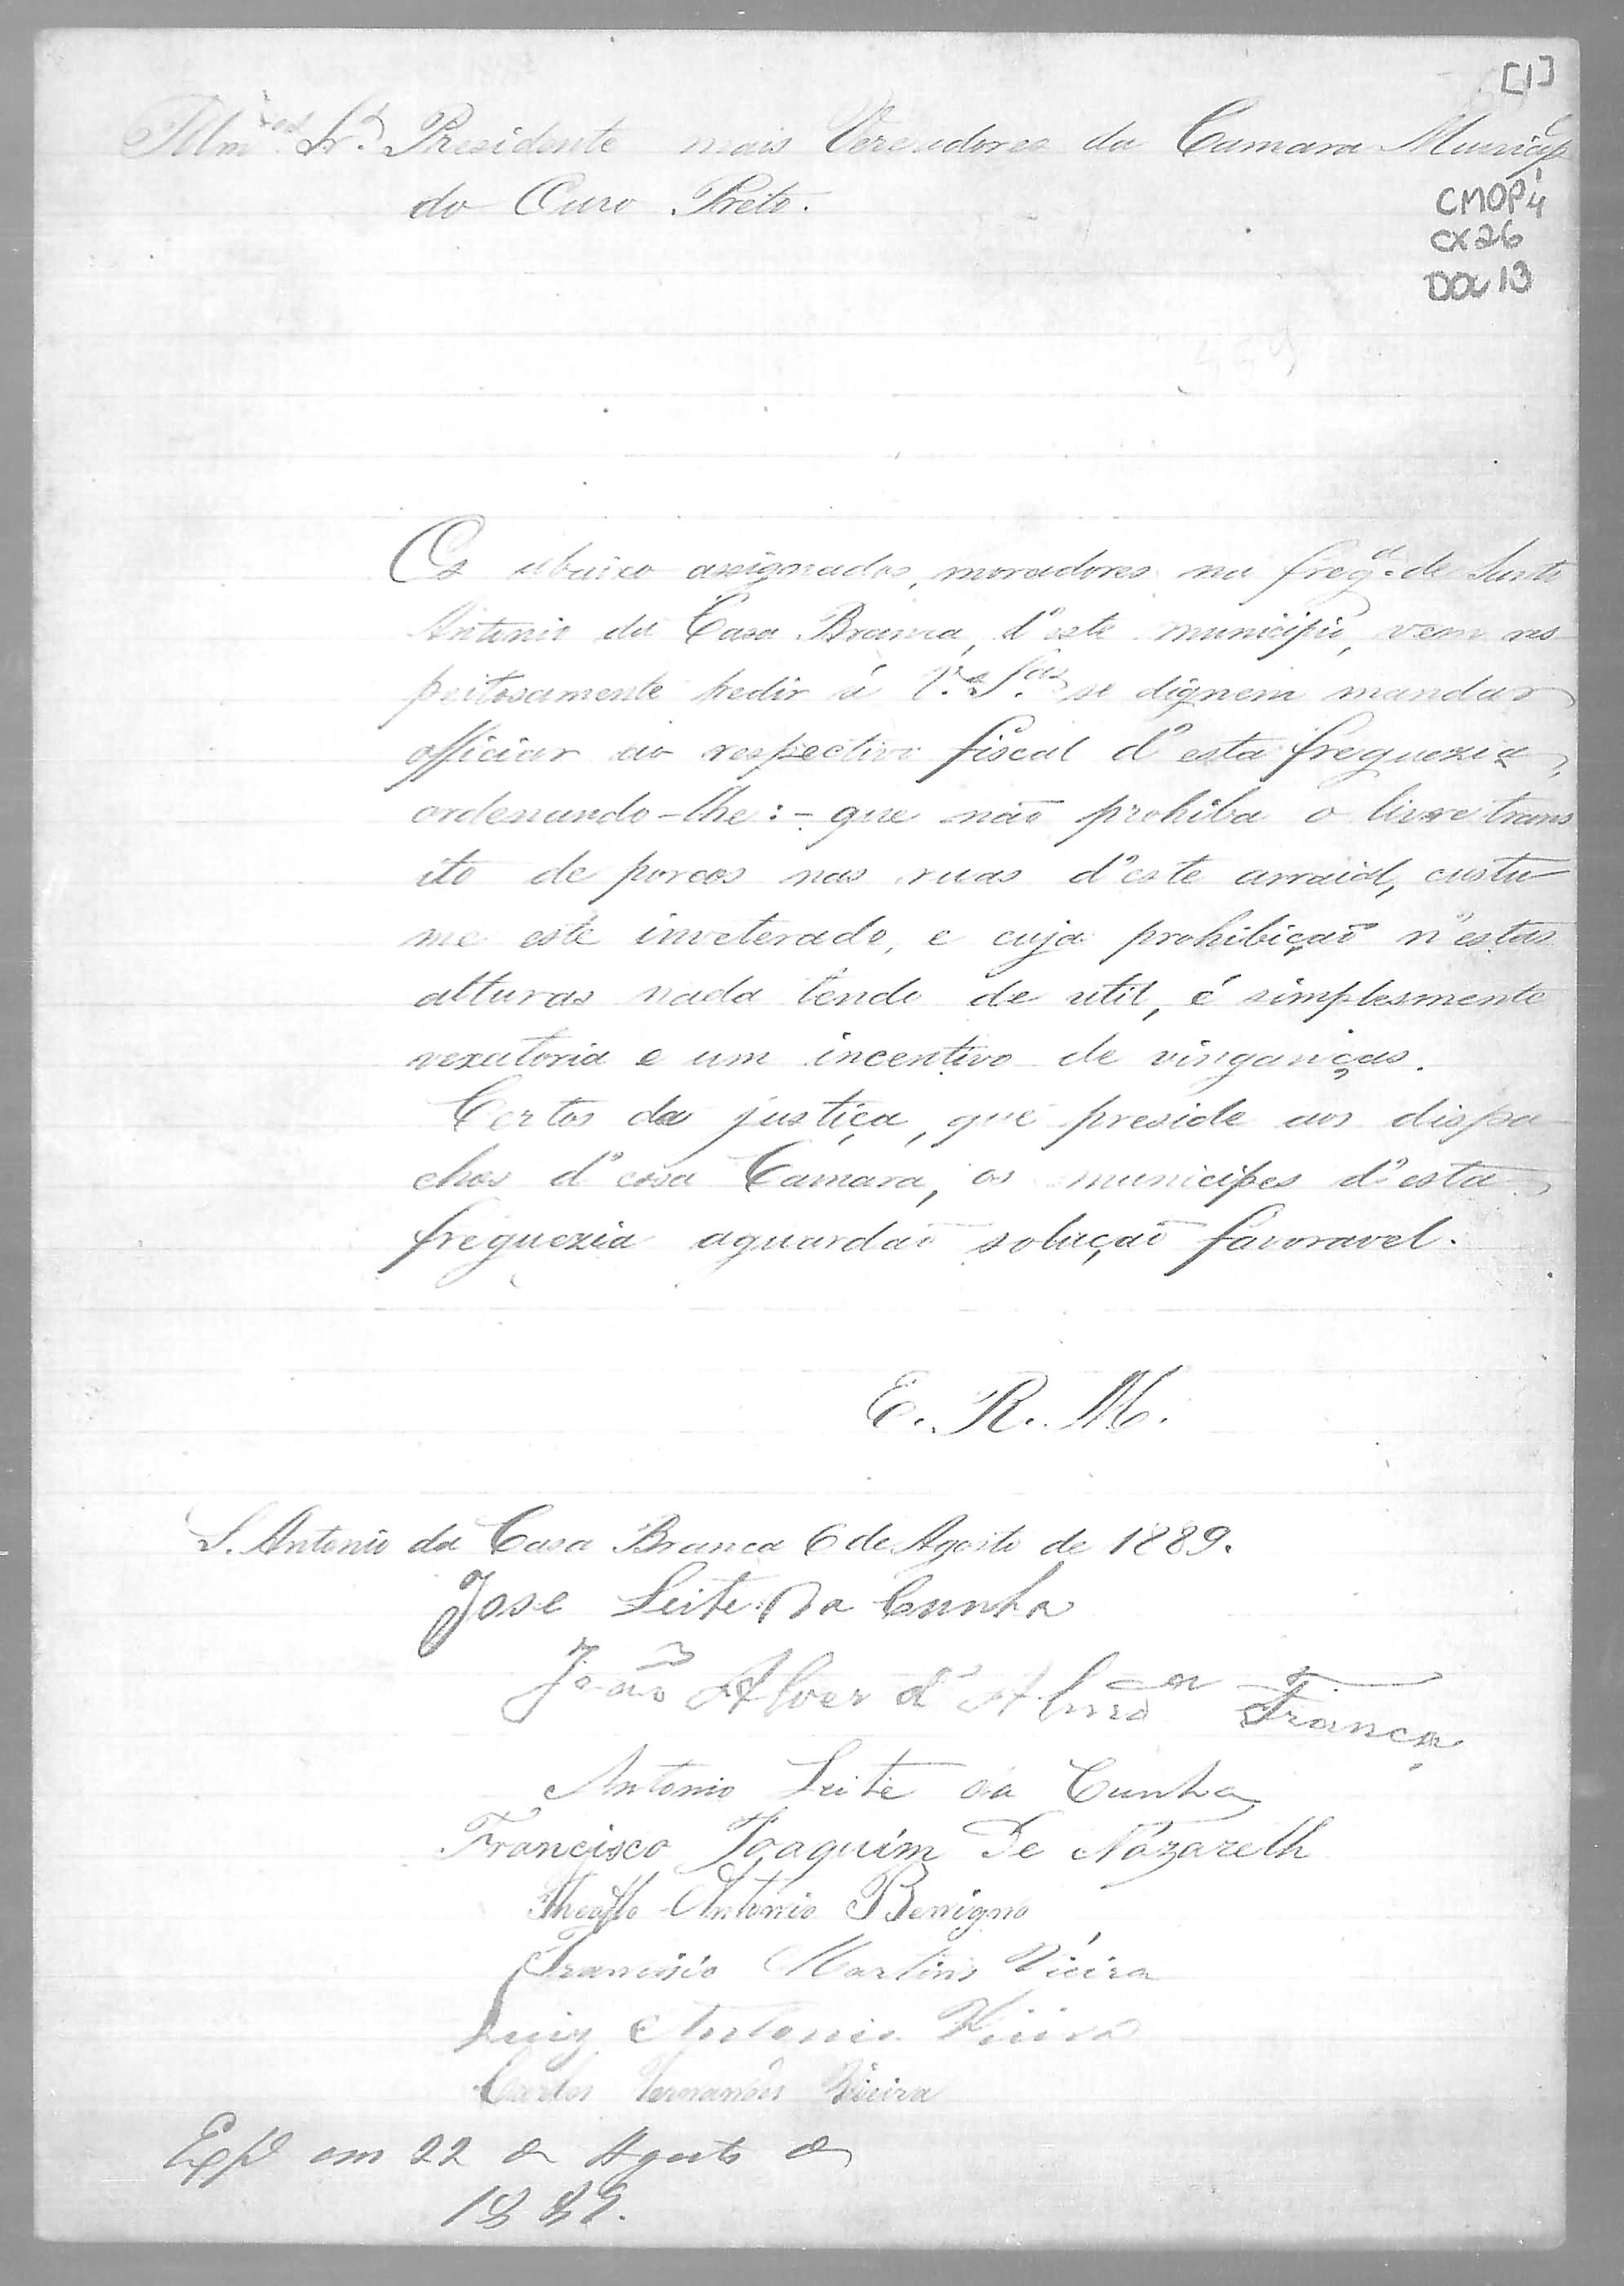 [1]
Illmos Snr. Presidente mais Vereadores da Camara Municipal
do Ouro Preto.
CMOP 4
CX26
DOC 13
Os abaixo assignados, moradores na fregª. de Santo
Antonio da Casa Branca, d'este municipio, vem res
peitosamente pedir á V.as S.as se dignem mandar
officiar ao respectivo fiscal d'esta freguezia,
ordenando-lhe:- que não prohiba o livre trans
ito de porcos nas ruas d'este arraial, custu
me este inveterado, e cuja prohibição n'estas
alturas nada tendo de util, é simplesmente
vexatoria e um incentivo de vinganças.
Certos da justiça, que preside aos dispa
chos d'essa Camara, os municipes d'esta
freguezia aguardão solução favoravel.
E. R. M.
S. Antonio da Casa Branca 6 de Agosto de 1889.
Jose Leite da Cunha
João Alves d'Almda França
Antonio Leite da Cunha
Francisco Joaquim de Nazareth
Theoflo Antonio Benigno
Francisco Martins Vieira
Luiz Antonio Vieira
Carlos Fernandes Vieira
Expº em 22 de Agosto de
1889.